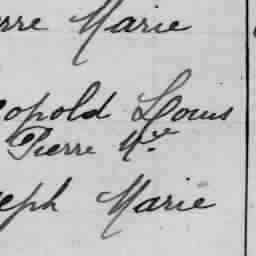 rre Marie
opold Louis
Pierre Mie
eph Marie